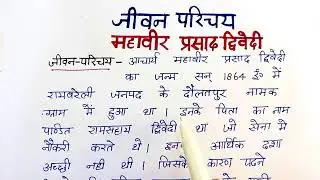 जीवन परिचय
महावीर प्रसाद द्विवेदी
जीवन-परिचय - आचार्य महावीर प्रसाद द्विवेदी
का जन्म सन् 1864 ई० में
रायबरेली जनपद के दौलतपुर नामक
ग्राम में हुआ था । इनके पिता का नाम
पण्डित रामसहाय द्विवेदी था जो सेना में
नौकरी करते थे। इनकी आर्थिक दशा
अच्छी नही थी । जिसके कारण पढने